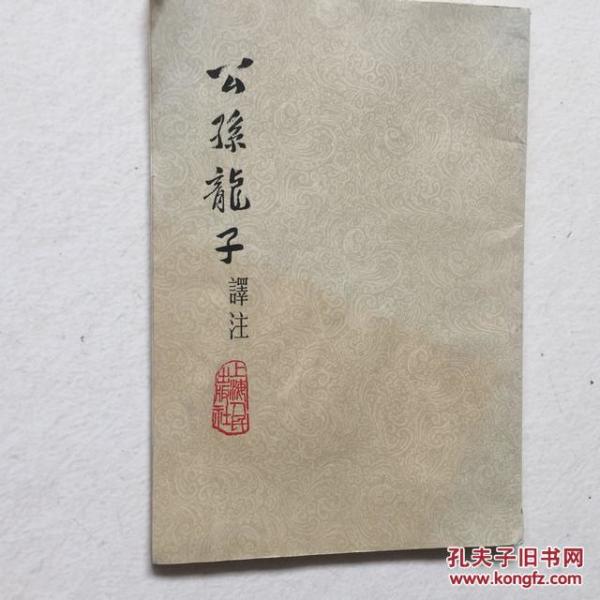 公孫龍子
譯注
上海人民
出版社
孔夫子旧书网
www.kongfz.com